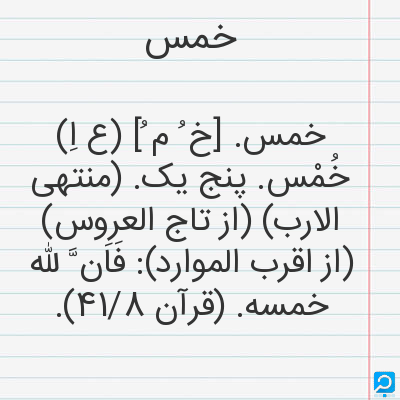 خمس
خمس. [خ ُ م ُ] (ع اِ)
خُمْس. پنج یک. (منتهی
الارب) (از تاج العروس)
(از اقرب الموارد): فَاَن َّ لله
خمسه. (قرآن ۴۱/۸).